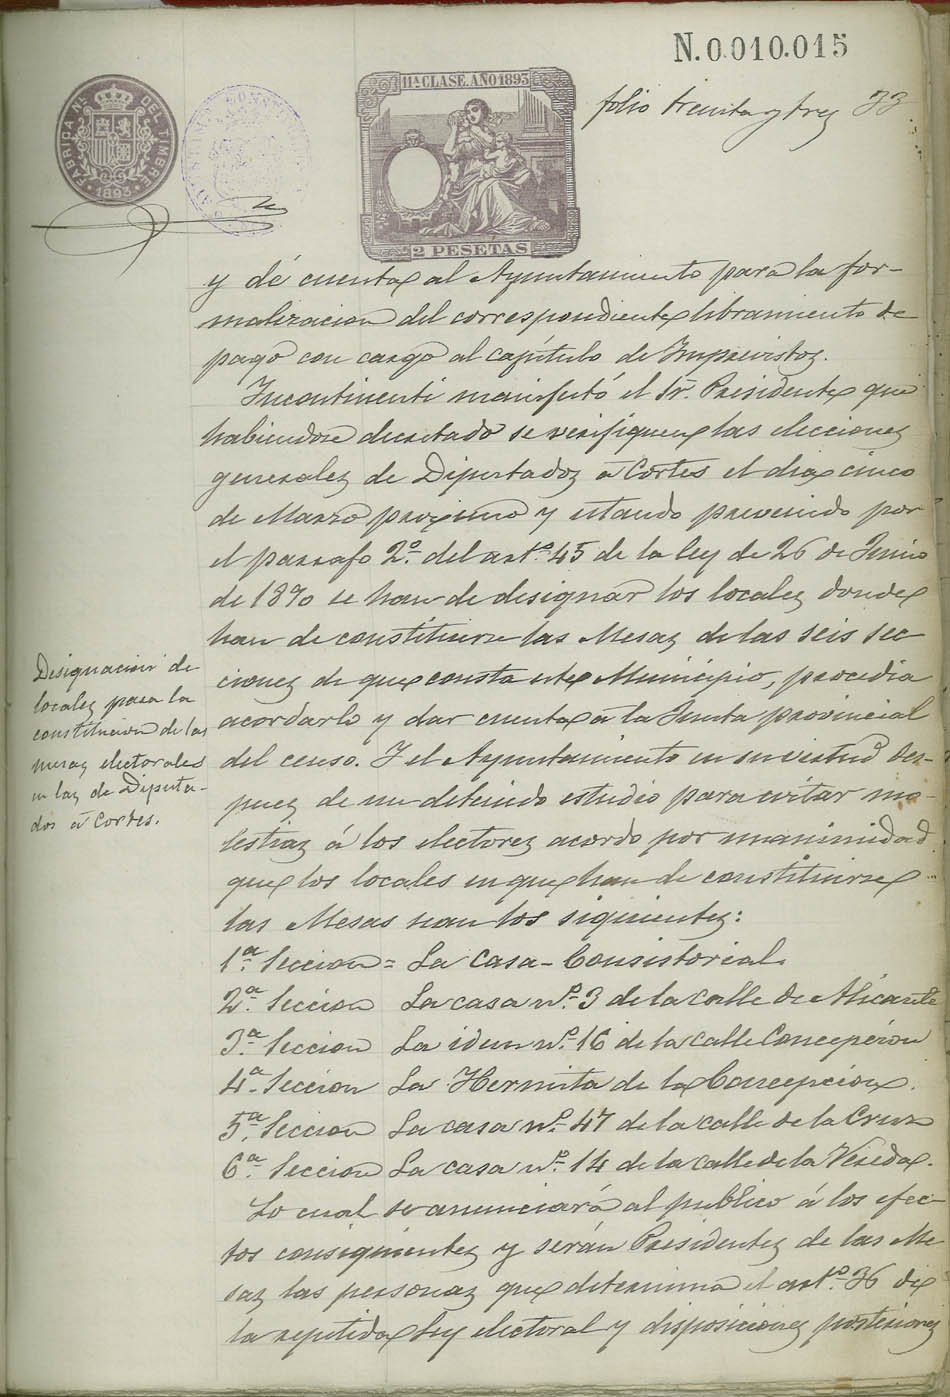 N.0.010.015
11ª CLASE. AÑO 1893
FÁBRICA NL. DEL TIMBRE
1893
2 PESETAS
folio treinta y tres 33
y dé cuenta al Ayuntamiento para la for-
malizacion del correspondiente libramiento de
pago con cargo al capítulo de Imprevistos.
Incontinenti manifestó el Sr. Presidente que
habiendose decretado se verifiquen las elecciones
generales de Diputados á Cortes el dia cinco
de Marzo proximo y estando prevenido por
el parrafo 2º. del artº. 45 de la ley de 26 de Junio
de 1890 se han de designar los locales donde
han de constituirse las Mesas de las seis sec
ciones de que consta este Municipio, procedia
acordarlo y dar cuenta á la Junta provincial
del censo. Y el Ayuntamiento en su virtud des-
pues de un detenido estudio para evitar mo-
lestias á los electores acordo por unanimidad
que los locales en que han de constituirse
las Mesas sean los siguientes:
1ª. Seccion = La Casa-Consistorial.
2ª. Seccion La casa nº. 3 de la calle de Alicante
3ª. Seccion La idem nº. 16 de la calle Concepcion
4ª. Seccion La Hermita de la Concepcion.
5ª. Seccion La casa nº. 47 de la calle de la Cruz
6ª. Seccion La casa nº. 14 de la calle de la Vereda.
Lo cual se anunciará al publico á los efec-
tos consiguientes y serán Presidentes de las Me
sas las personas que determina el artº. 36 de
la repetida Ley electoral y disposiciones posteriores
Designacion de
locales para la
constitucion de las
mesas electorales
en las de Diputa-
dos á Cortes.